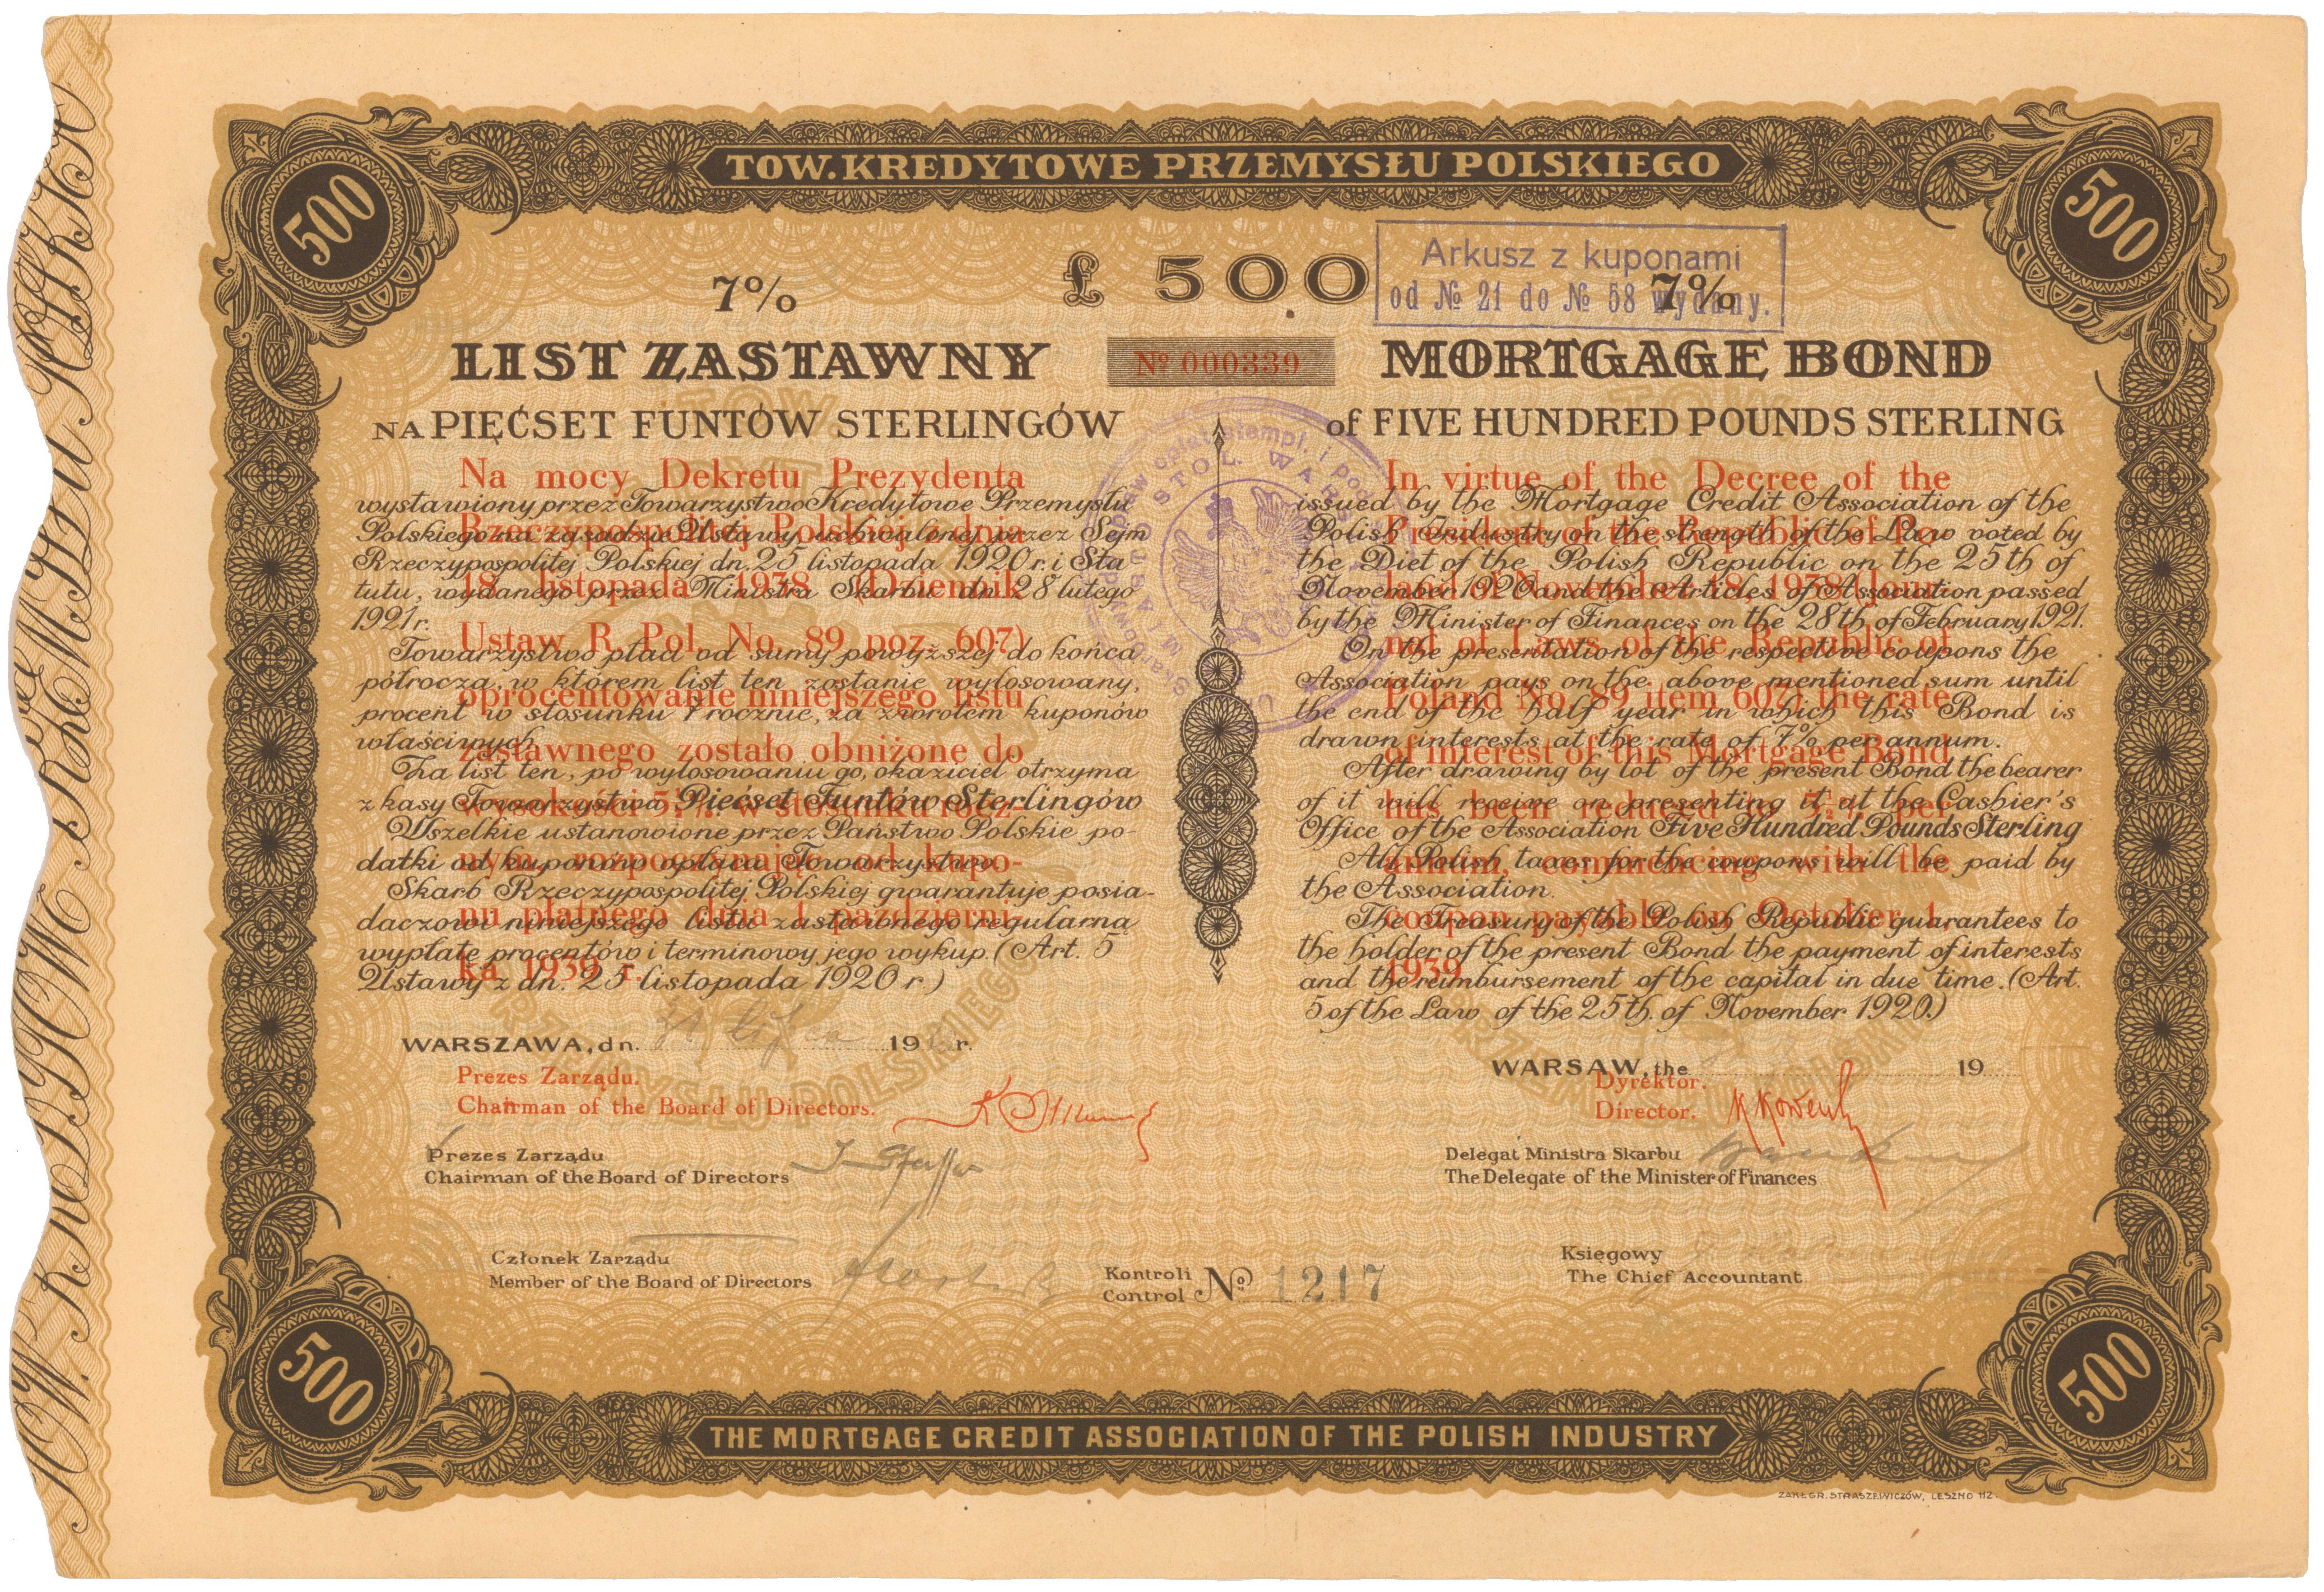 TOW. KREDYTOWE PRZEMYSŁU POLSKIEGO
500
500
£ 500
Arkusz z kuponami
od № 21 do № 58 wydany.
7%
7%
LIST ZASTAWNY
NA PIĘĆSET FUNTÓW STERLINGÓW
№ 000339
MORTGAGE BOND
of FIVE HUNDRED POUNDS STERLING
wystawiony przez Towarzystwo Kredytowe Przemysłu
Polskiego na zasadzie Ustawy uchwalonej przez Sejm
Rzeczypospolitej Polskiej dn. 25 listopada 1920 r. i Sta
tutu, wydanego przez Ministra Skarbu dn. 28 lutego
1921 r.
Towarzystwo płaci od sumy powyższej do końca
półrocza, w którem list ten zostanie wylosowany,
procent w stosunku 7 rocznie, za zwrotem kuponów
właściwych.
Za list ten, po wylosowaniu go, okaziciel otrzyma
z kasy Towarzystwa Pięćset Funtów Sterlingów
Wszelkie ustanowione przez Państwo Polskie po-
datki od kuponów opłaca Towarzystwo.
Skarb Rzeczypospolitej Polskiej gwarantuje posia-
daczowi niniejszego listu zastawnego regularną
wypłatę procentów i terminowy jego wykup. (Art. 5
Ustawy z dn. 25 listopada 1920 r.)
Na mocy Dekretu Prezydenta
Rzeczypospolitej Polskiej z dnia
18 listopada 1938 (Dziennik
Ustaw R. Pol. No. 89 poz. 607)
oprocentowanie niniejszego listu
zastawnego zostało obniżone do
wysokości 5½% w stosunku rocz-
nym, rozpoczynając od kupo-
nu płatnego dnia 1 październi-
ka 1939 r.
issued by the Mortgage Credit Association of the
Polish Industry on the strength of the Law voted by
the Diet of the Polish Republic on the 25th of
November 1920 and the Articles of Association passed
by the Minister of Finances on the 28th of February 1921.
On the presentation of the respective coupons the
Association pays on the above mentioned sum until
the end of the half year in which this Bond is
drawn interests at the rate of 7% per annum.
After drawing by lot of the present Bond the bearer
of it will receive on presenting it at the Cashier's
Office of the Association Five Hundred Pounds Sterling
All Polish taxes for the coupons will be paid by
the Association.
The Treasury of the Polish Republic guarantees to
the holder of the present Bond the payment of interests
and the reimbursement of the capital in due time. (Art.
5 of the Law of the 25th. of November 1920.)
In virtue of the Decree of the
President of the Republic of Po
land of November 18, 1938 (Jour-
nal of Laws of the Republic of
Poland No. 89 item 607) the rate
of interest of this Mortgage Bond
has been reduced to 5½% per
annum, commencing with the
coupon payable on October 1,
1939
WARSZAWA, dn. 19 r.
WARSAW, the 19
Prezes Zarządu.
Chairman of the Board of Directors.
Dyrektor.
Director.
Prezes Zarządu
Chairman of the Board of Directors
Delegat Ministra Skarbu
The Delegate of the Minister of Finances
Członek Zarządu
Member of the Board of Directors
Kontroli
Control № 1217
Księgowy
The Chief Accountant
500
500
THE MORTGAGE CREDIT ASSOCIATION OF THE POLISH INDUSTRY
ZAKŁ. GR. STRASZEWICZÓW, LESZNO 112.